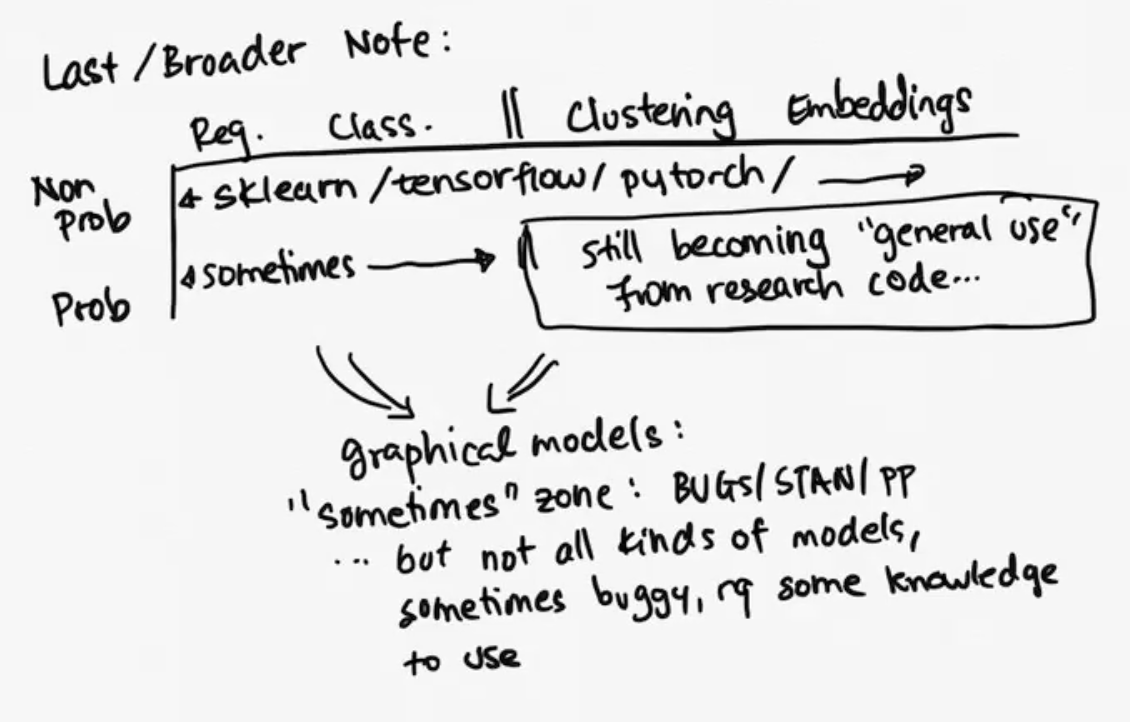 Last/Broader Note:
Reg. Class. || Clustering Embeddings
Non
Prob
sklearn/tensorflow/pytorch/
still becoming "general use"
sometimes
from research code...
Prob
graphical models:
"sometimes" zone: BUGS/STAN/PP
... but not all kinds of models,
sometimes buggy, rq some knowledge
to use